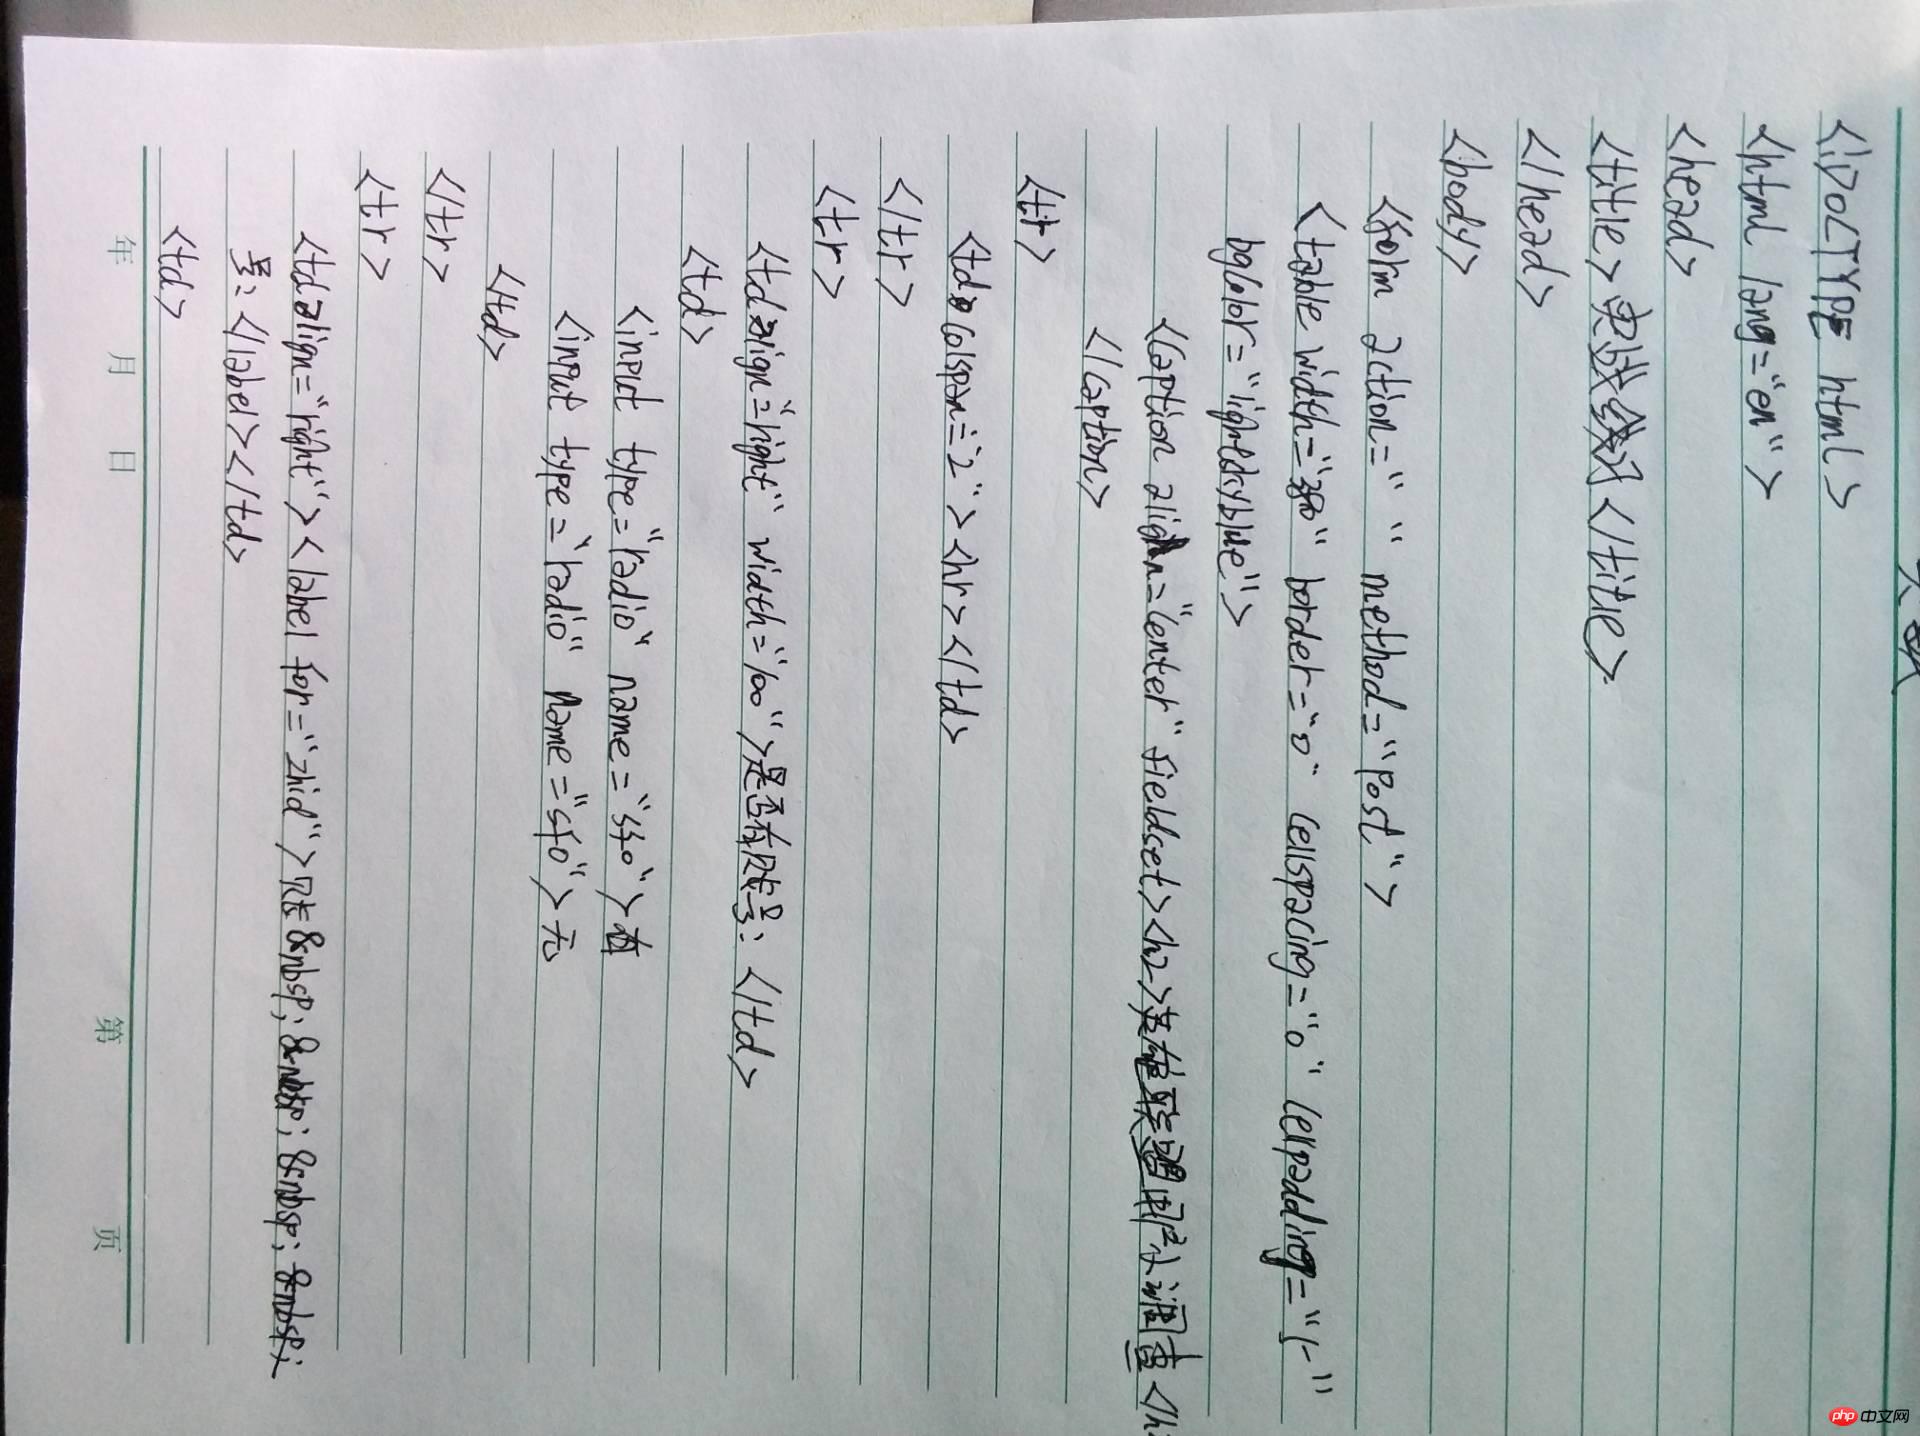 <!DOCTYPE html>
<html lang="en">
<head>
<title>实战练习</title>
</head>
<body>
<form action=" " method="post">
<table width="" border="0" cellspacing="0" cellpadding="1"
bgcolor="lightskyblue">
<caption align="center" fieldset><h2>英雄联盟用户调查</h2
</caption>
<tr>
<td colspan="2"><hr></td>
</tr>
<tr>
<td align="right" width="100">是否有账号:</td>
<td>
<input type="radio" name="sfo">有
<input type="radio" name="sfo">无
<td>
</tr>
<tr>
<td align="right"><label for="zhid">账&nbsp;&nbsp;&nbsp;&nbsp;
号:</label></td>
<td>
年 月 日 第 页
php 中文网